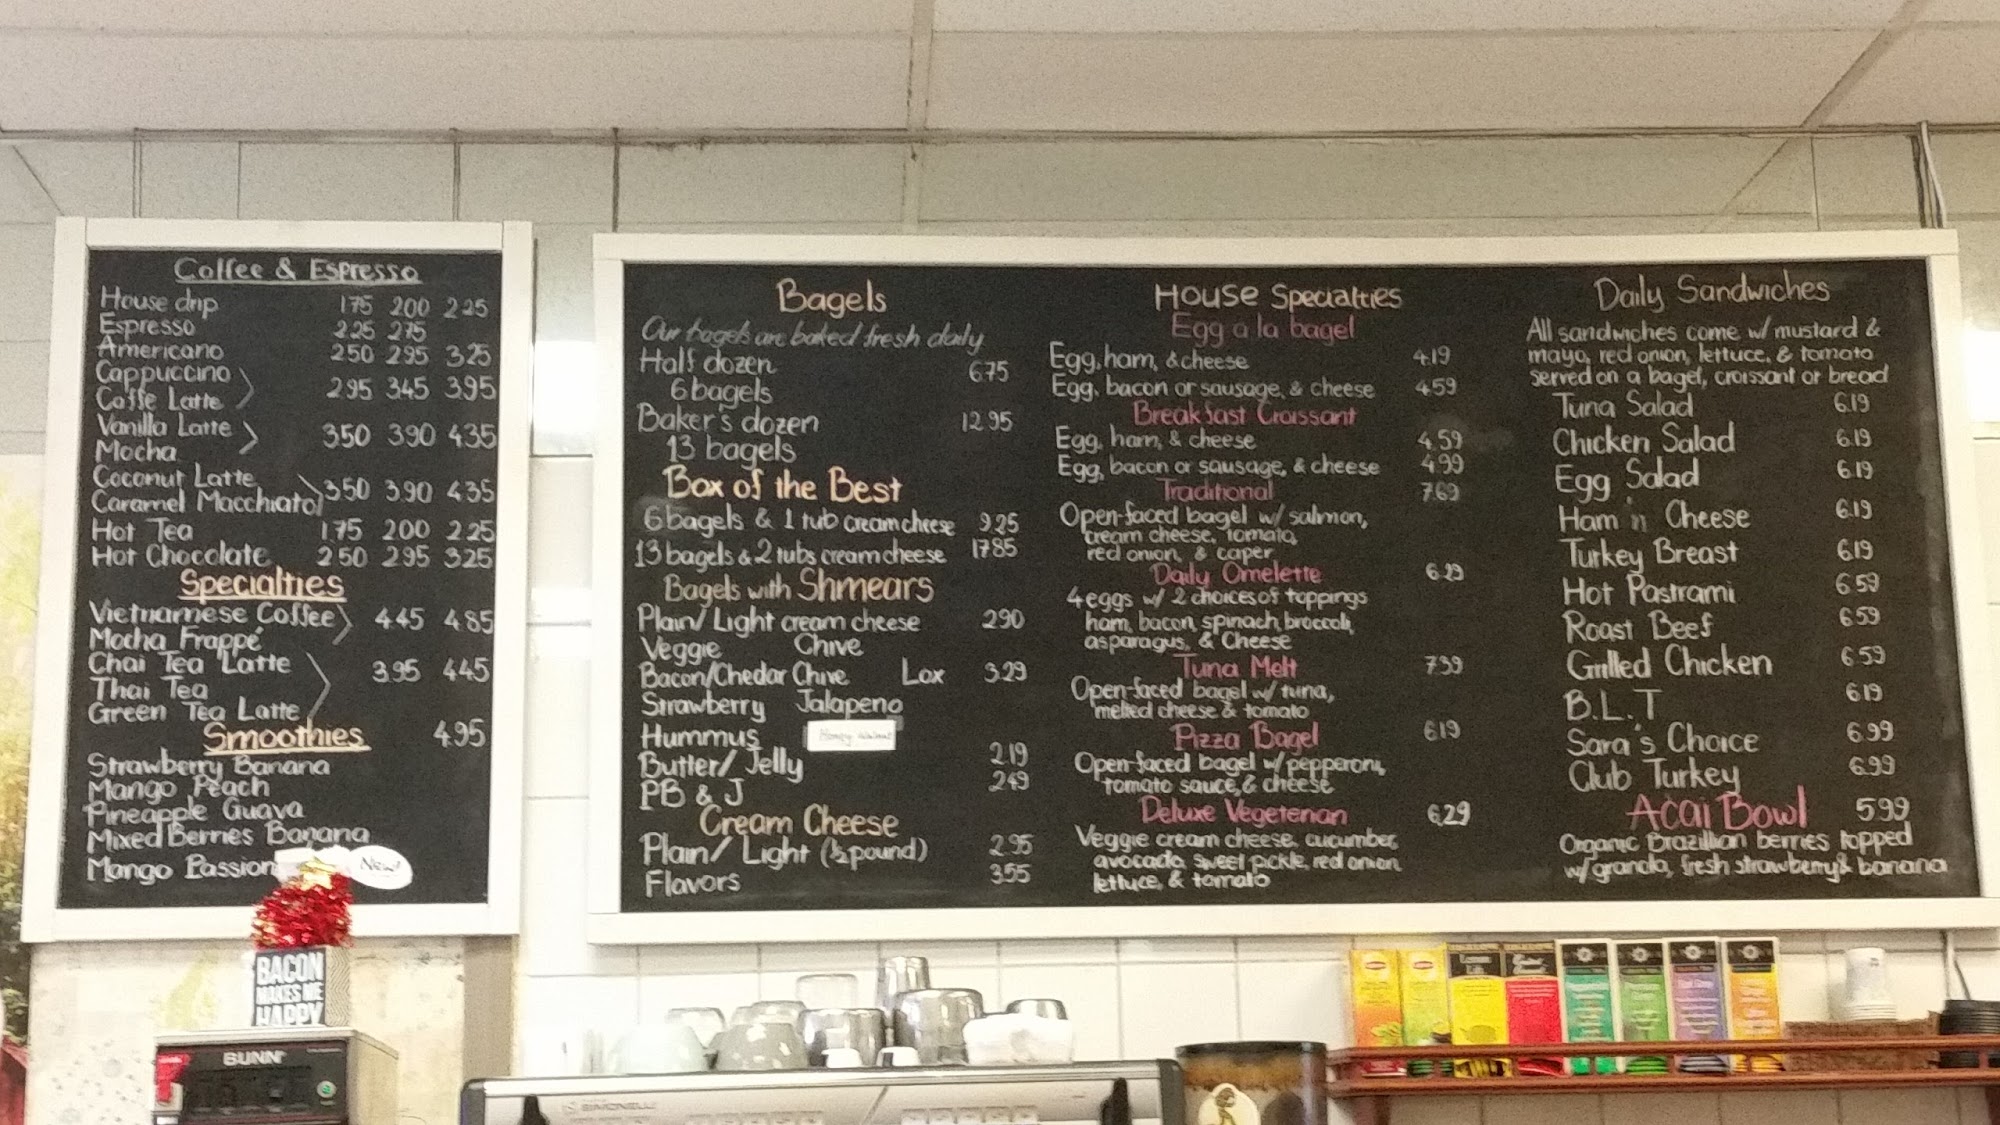 Coffee & Espresso
House drip 175 200 225
Espresso 225 275
Americano 250 295 325
Cappuccino
Caffe Latte 295 345 395
Vanilla Latte
Mocha 350 390 435
Coconut Latte
Caramel Macchiato 350 390 435
Hot Tea 175 200 225
Hot Chocolate 250 295 325
Specialties
Vietnamese Coffee
Mocha Frappé 445 485
Chai Tea Latte
Thai Tea 3.95 445
Green Tea Latte
Smoothies 495
Strawberry Banana
Mango Peach
Pineapple Guava
Mixed Berries Banana
Mango Passion New!
Bagels
Our bagels are baked fresh daily
Half dozen 675
6 bagels
Baker's dozen 12 95
13 bagels
Box of the Best
6 bagels & 1 tub cream cheese 925
13 bagels & 2 tubs cream cheese 1785
Bagels with Shmears
Plain/Light cream cheese 290
Veggie Chive
Bacon/Chedar Chive Lox 329
Strawberry Jalapeno
Hummus Honey Walnut
Butter/Jelly 219
PB & J 249
Cream Cheese
Plain/Light (½ pound) 295
Flavors 355
House Specialties
Egg a la bagel
Egg, ham, & cheese 419
Egg, bacon or sausage, & cheese 459
Breakfast Croissant
Egg, ham, & cheese 4.59
Egg, bacon or sausage, & cheese 499
Traditional 769
Open-faced bagel w/ salmon,
cream cheese, tomato,
red onion, & caper
Daily Omelette
4 eggs w/ 2 choices of toppings
ham, bacon, spinach, broccoli,
asparagus, & Cheese
Tuna Melt
Open-faced bagel w/ tuna,
melted cheese & tomato
Pizza Bagel 619
Open-faced bagel w/ pepperoni,
tomato sauce, & cheese
Deluxe Vegeterian 6,29
Veggie cream cheese, cucumber,
avocado, sweet pickle, red onion,
lettuce, & tomato
Daily Sandwiches
All sandwiches come w/ mustard &
mayo, red onion, lettuce, & tomato
served on a bagel, croissant or bread
Tuna Salad 6.19
Chicken Salad 6.19
Egg Salad 6.19
Ham 'n' Cheese 6.19
Turkey Breast 6.19
Hot Pastrami 6 59
Roast Beef 6 59
Grilled Chicken 6 59
B.L.T 619
Sara's Choice 6.99
Club Turkey 6.99
Acai Bowl 5.99
Organic Brazillian berries topped
w/ granola, fresh strawberry & banana
BACON
MAKES ME
HAPPY
BUNN
SIMONELLI